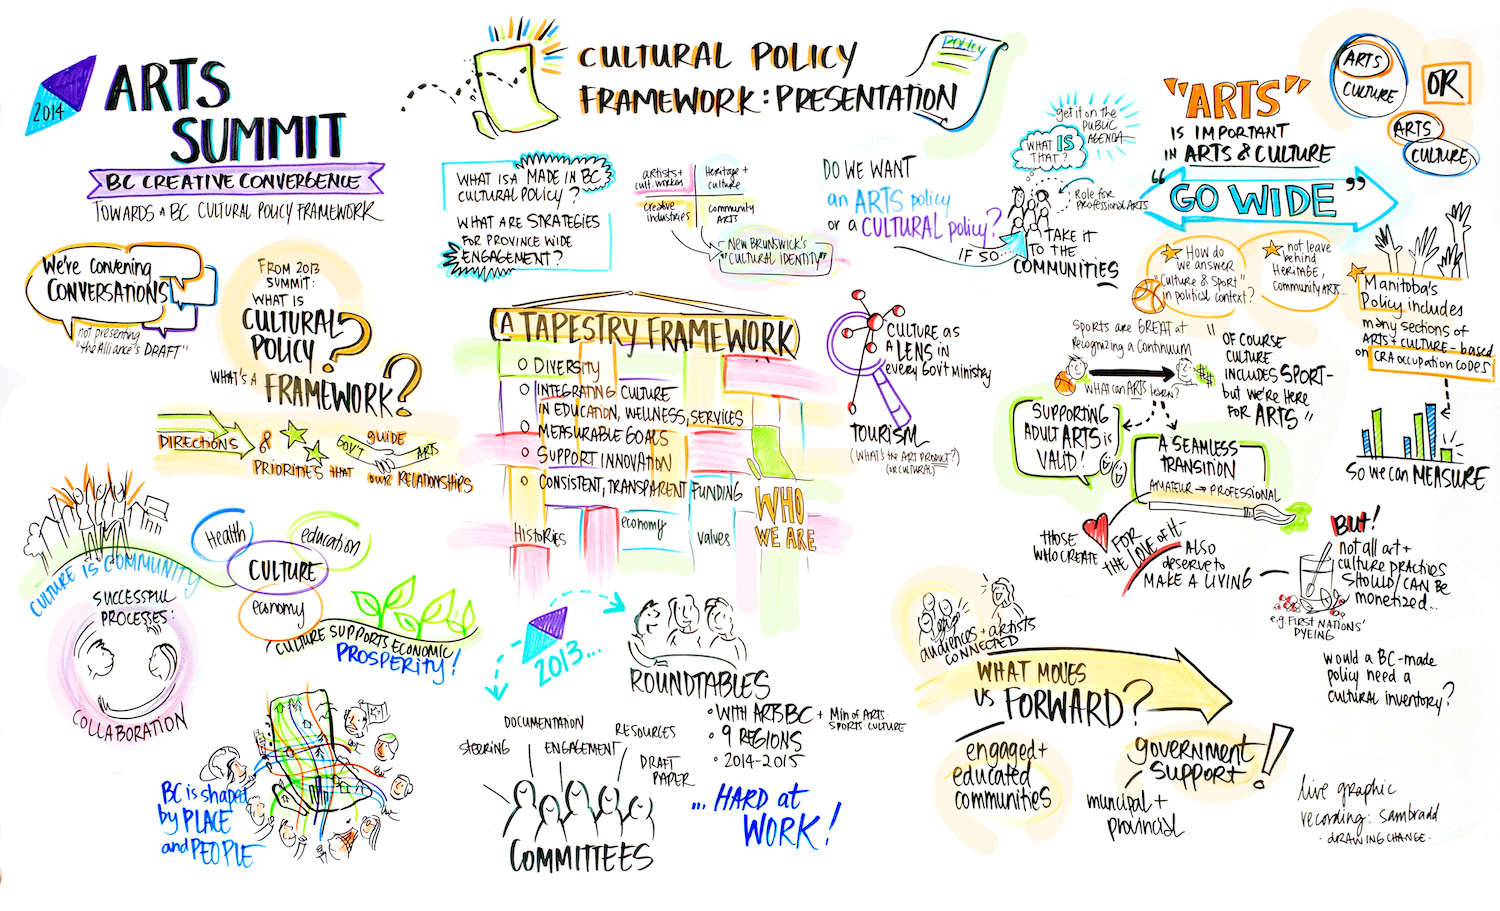 2014
ARTS
SUMMIT
BC CREATIVE CONVERGENCE
TOWARDS A BC CULTURAL POLICY FRAMEWORK
We're convening
CONVERSATIONS
not presenting
"the Alliance's DRAFT"
FROM 2013
SUMMIT:
WHAT IS
CULTURAL
POLICY?
WHAT'S A FRAMEWORK?
DIRECTIONS & 
PRIORITIES THAT
GUIDE
GOV'T ARTS
our RELATIONSHIPS
CULTURE IS COMMUNITY
Health
education
CULTURE
economy
CULTURE SUPPORTS ECONOMIC
PROSPERITY!
SUCCESSFUL
PROCESSES:
COLLABORATION
BC is shaped
by PLACE
and PEOPLE
CULTURAL POLICY
FRAMEWORK: PRESENTATION
POLICY
WHAT IS A MADE IN BC
CULTURAL POLICY?
WHAT ARE STRATEGIES
FOR PROVINCE WIDE
ENGAGEMENT?
artists +
cult. workers
Heritage +
culture
creative
industries
community
ARTS
NEW BRUNSWICK'S
"CULTURAL IDENTITY"
DO WE WANT
an ARTS policy
or a CULTURAL policy?
IF SO...
get it on the
PUBLIC
AGENDA
WHAT IS
THAT?
Role for
Professional ARTS
TAKE IT
TO THE
COMMUNITIES
A TAPESTRY FRAMEWORK
DIVERSITY
INTEGRATING CULTURE
IN EDUCATION, WELLNESS, SERVICES
MEASURABLE GOALS
SUPPORT INNOVATION
CONSISTENT, TRANSPARENT FUNDING
Histories
economy
values
WHO
WE ARE
CULTURE AS
A LENS IN
every GOV'T MINISTRY
TOURISM
(WHAT'S the ART PRODUCT?)
(OR CULTURAL)
2013...
ROUNDTABLES
• WITH ARTS BC + Min of ARTS
SPORTS · CULTURE
• 9 REGIONS
• 2014-2015
... HARD at
WORK!
steering
DOCUMENTATION
ENGAGEMENT
RESOURCES
DRAFT
PAPER
COMMITTEES
"ARTS"
IS IMPORTANT
IN ARTS & CULTURE
"GO WIDE"
ARTS
CULTURE
OR
ARTS
CULTURE
How do
we answer
"Culture & Sport"
in political context?
not leave
behind
HERITAGE,
community ARTS...
Manitoba's
Policy includes
many sections of
ARTS + CULTURE - based
on CRA occupation codes
So we can MEASURE
Sports are GREAT at
recognizing a Continuum
WHAT can ARTS learn?
"OF COURSE
CULTURE
INCLUDES SPORT -
but we're here
FOR ARTS"
SUPPORTING
ADULT ARTS is
VALID!
A SEAMLESS
TRANSITION
AMATEUR → PROFESSIONAL
THOSE
WHO CREATE
FOR
THE LOVE OF IT -
ALSO
deserve to
MAKE A LIVING
BUT!
not all art +
culture practices
SHOULD/CAN BE
monetized...
e.g. FIRST NATIONS'
DYEING
would a BC-made
policy need a
CULTURAL inventory?
audiences + artists
CONNECTED
WHAT MOVES
US FORWARD?
engaged +
educated
communities
government
support!
municipal +
provincial
live graphic
recording: sambradd
· DRAWING CHANGE ·